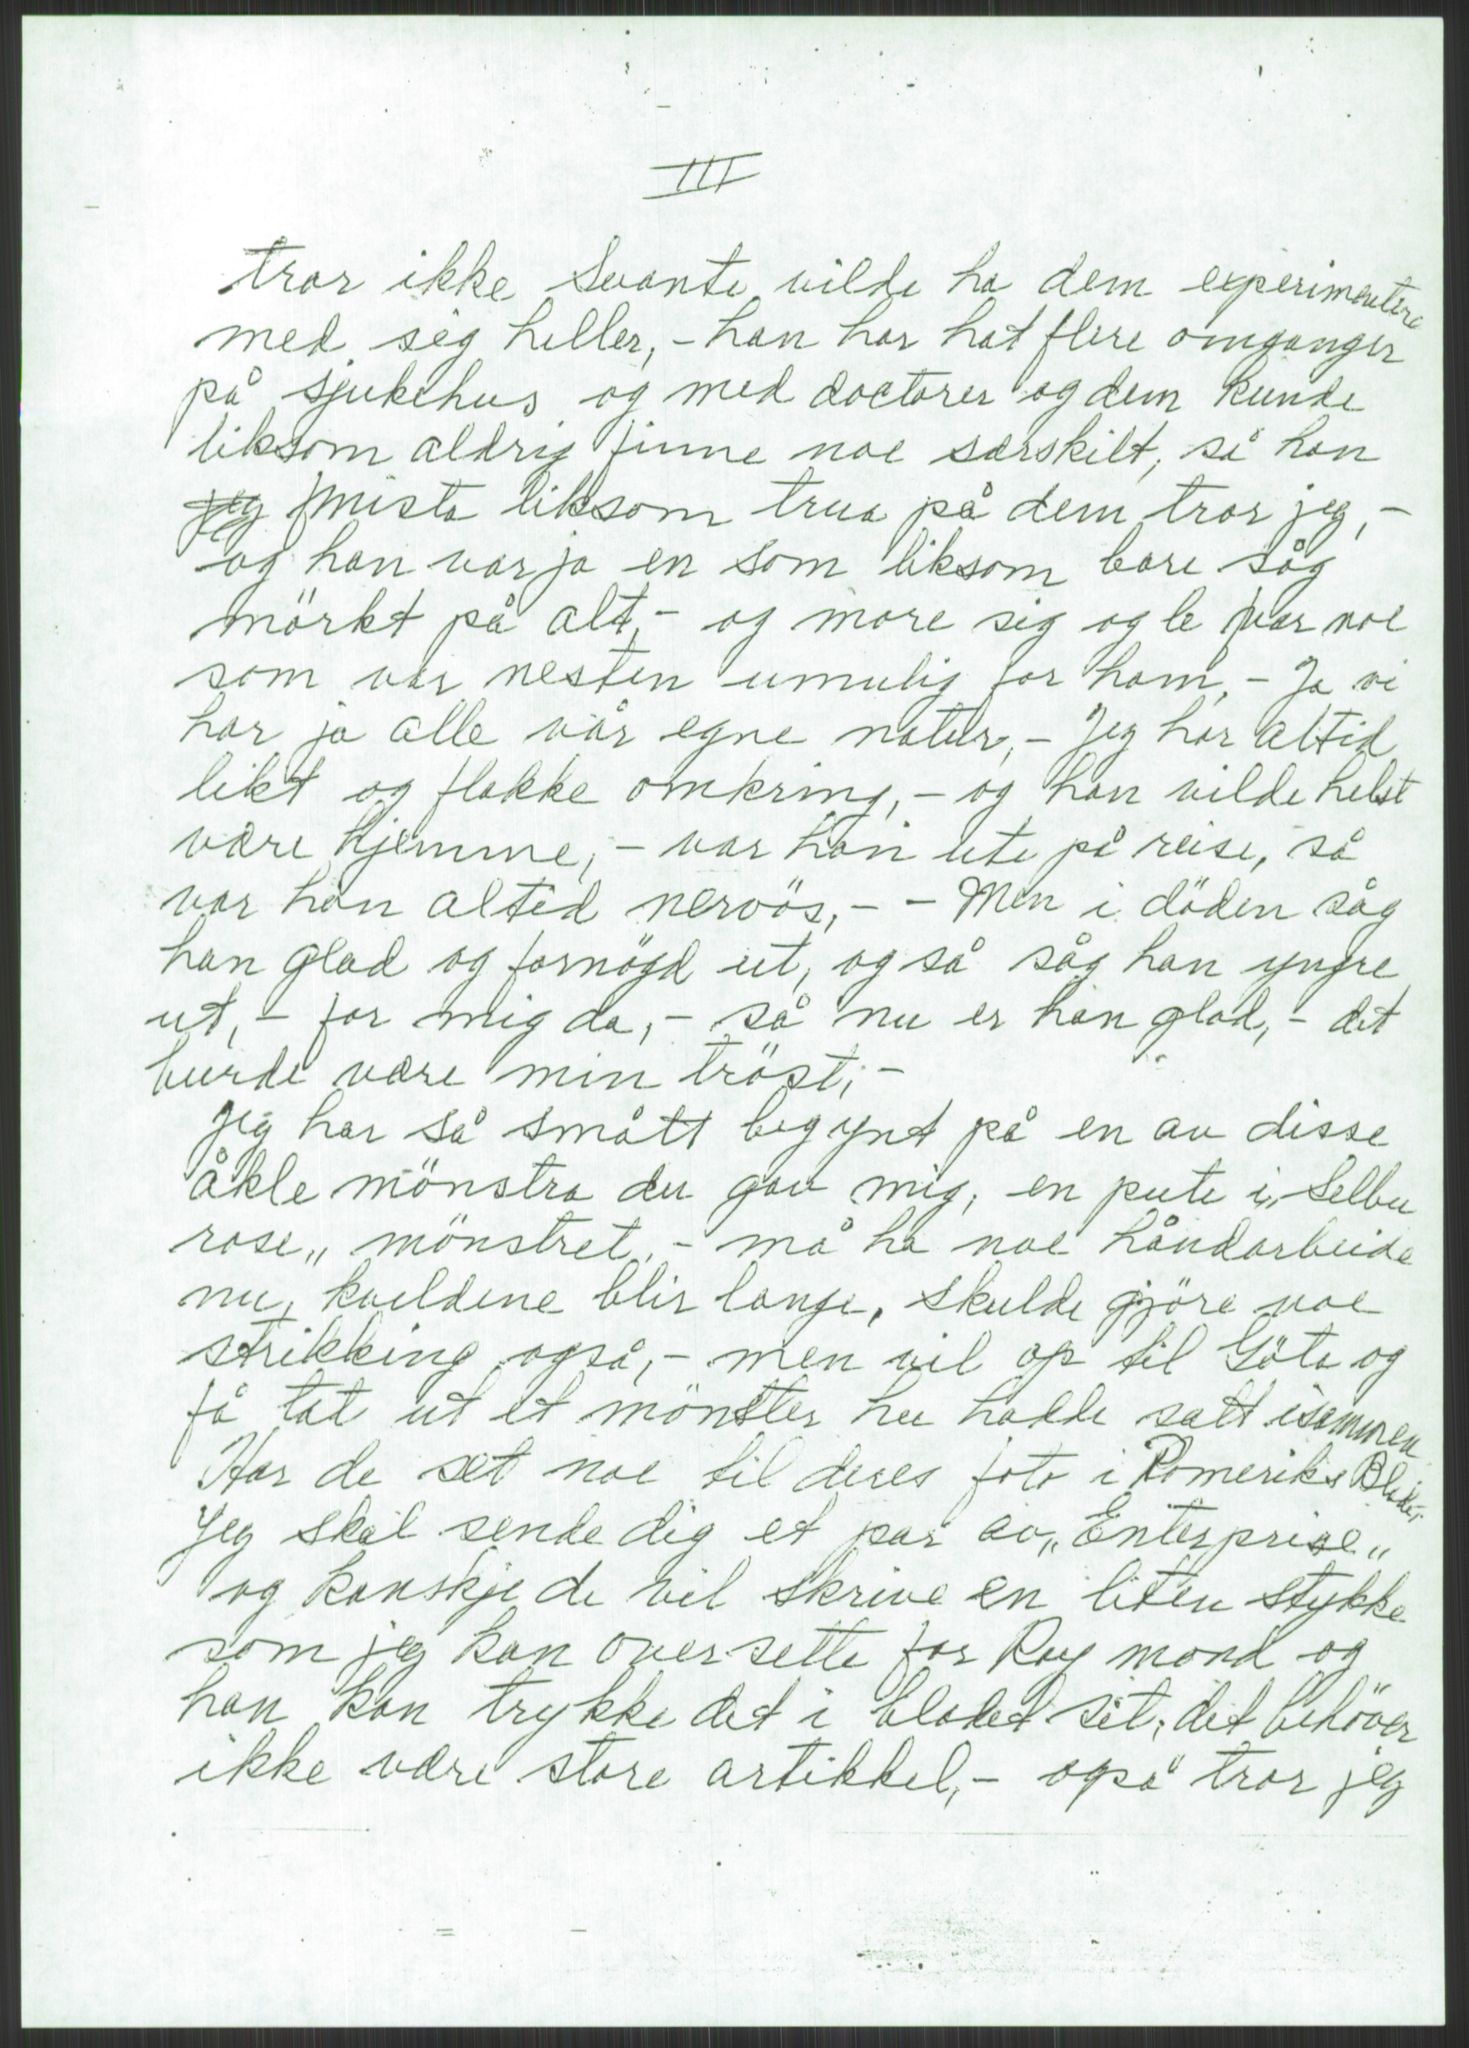 III
tror ikke Svante vilde ha dem experimentere
med sig heller, - han har hat flere omganger
på sjukehus og med doctorer og dem kunde
liksom aldrig finne noe særskilt, så han
jeg mista liksom trua på dem tror jeg, -
og han var ja en som liksom bare såg
mörkt på alt, - og more sig og le var noe
som var nesten umulig for ham, - Ja vi
har jo alle vår egne natur, - Jeg har altid
likt og flakke omkring, - og han vilde helst
være hjemme, - var han ute på reise, så
var han altid nervös, - - Men i döden såg
han glad og fornögd ut, og så såg han yngre
ut, - for mig da, - så nu er han glad, - det
burde være min tröst, -
Jeg har så smått begynt på en av disse
åkle mönstra du gav mig, en pute i „Selbu
rose„ mönstret, - må ha noe håndarbeide
nu, kveldene blir lange, skulde gjöre noe
strikking også, - men vil op til Göta og
få tat ut et mönster hu hadde satt isammen
Har de set noe til deres foto i Romeriks Blader
Jeg skal sende dig et par av „Enterprise„
og kanskje de vil skrive en liten stykke
som jeg kan oversette for Ray mond og
han kan trykke det i bladet sit, det behöver
ikke være store artikkel, - også tror jeg